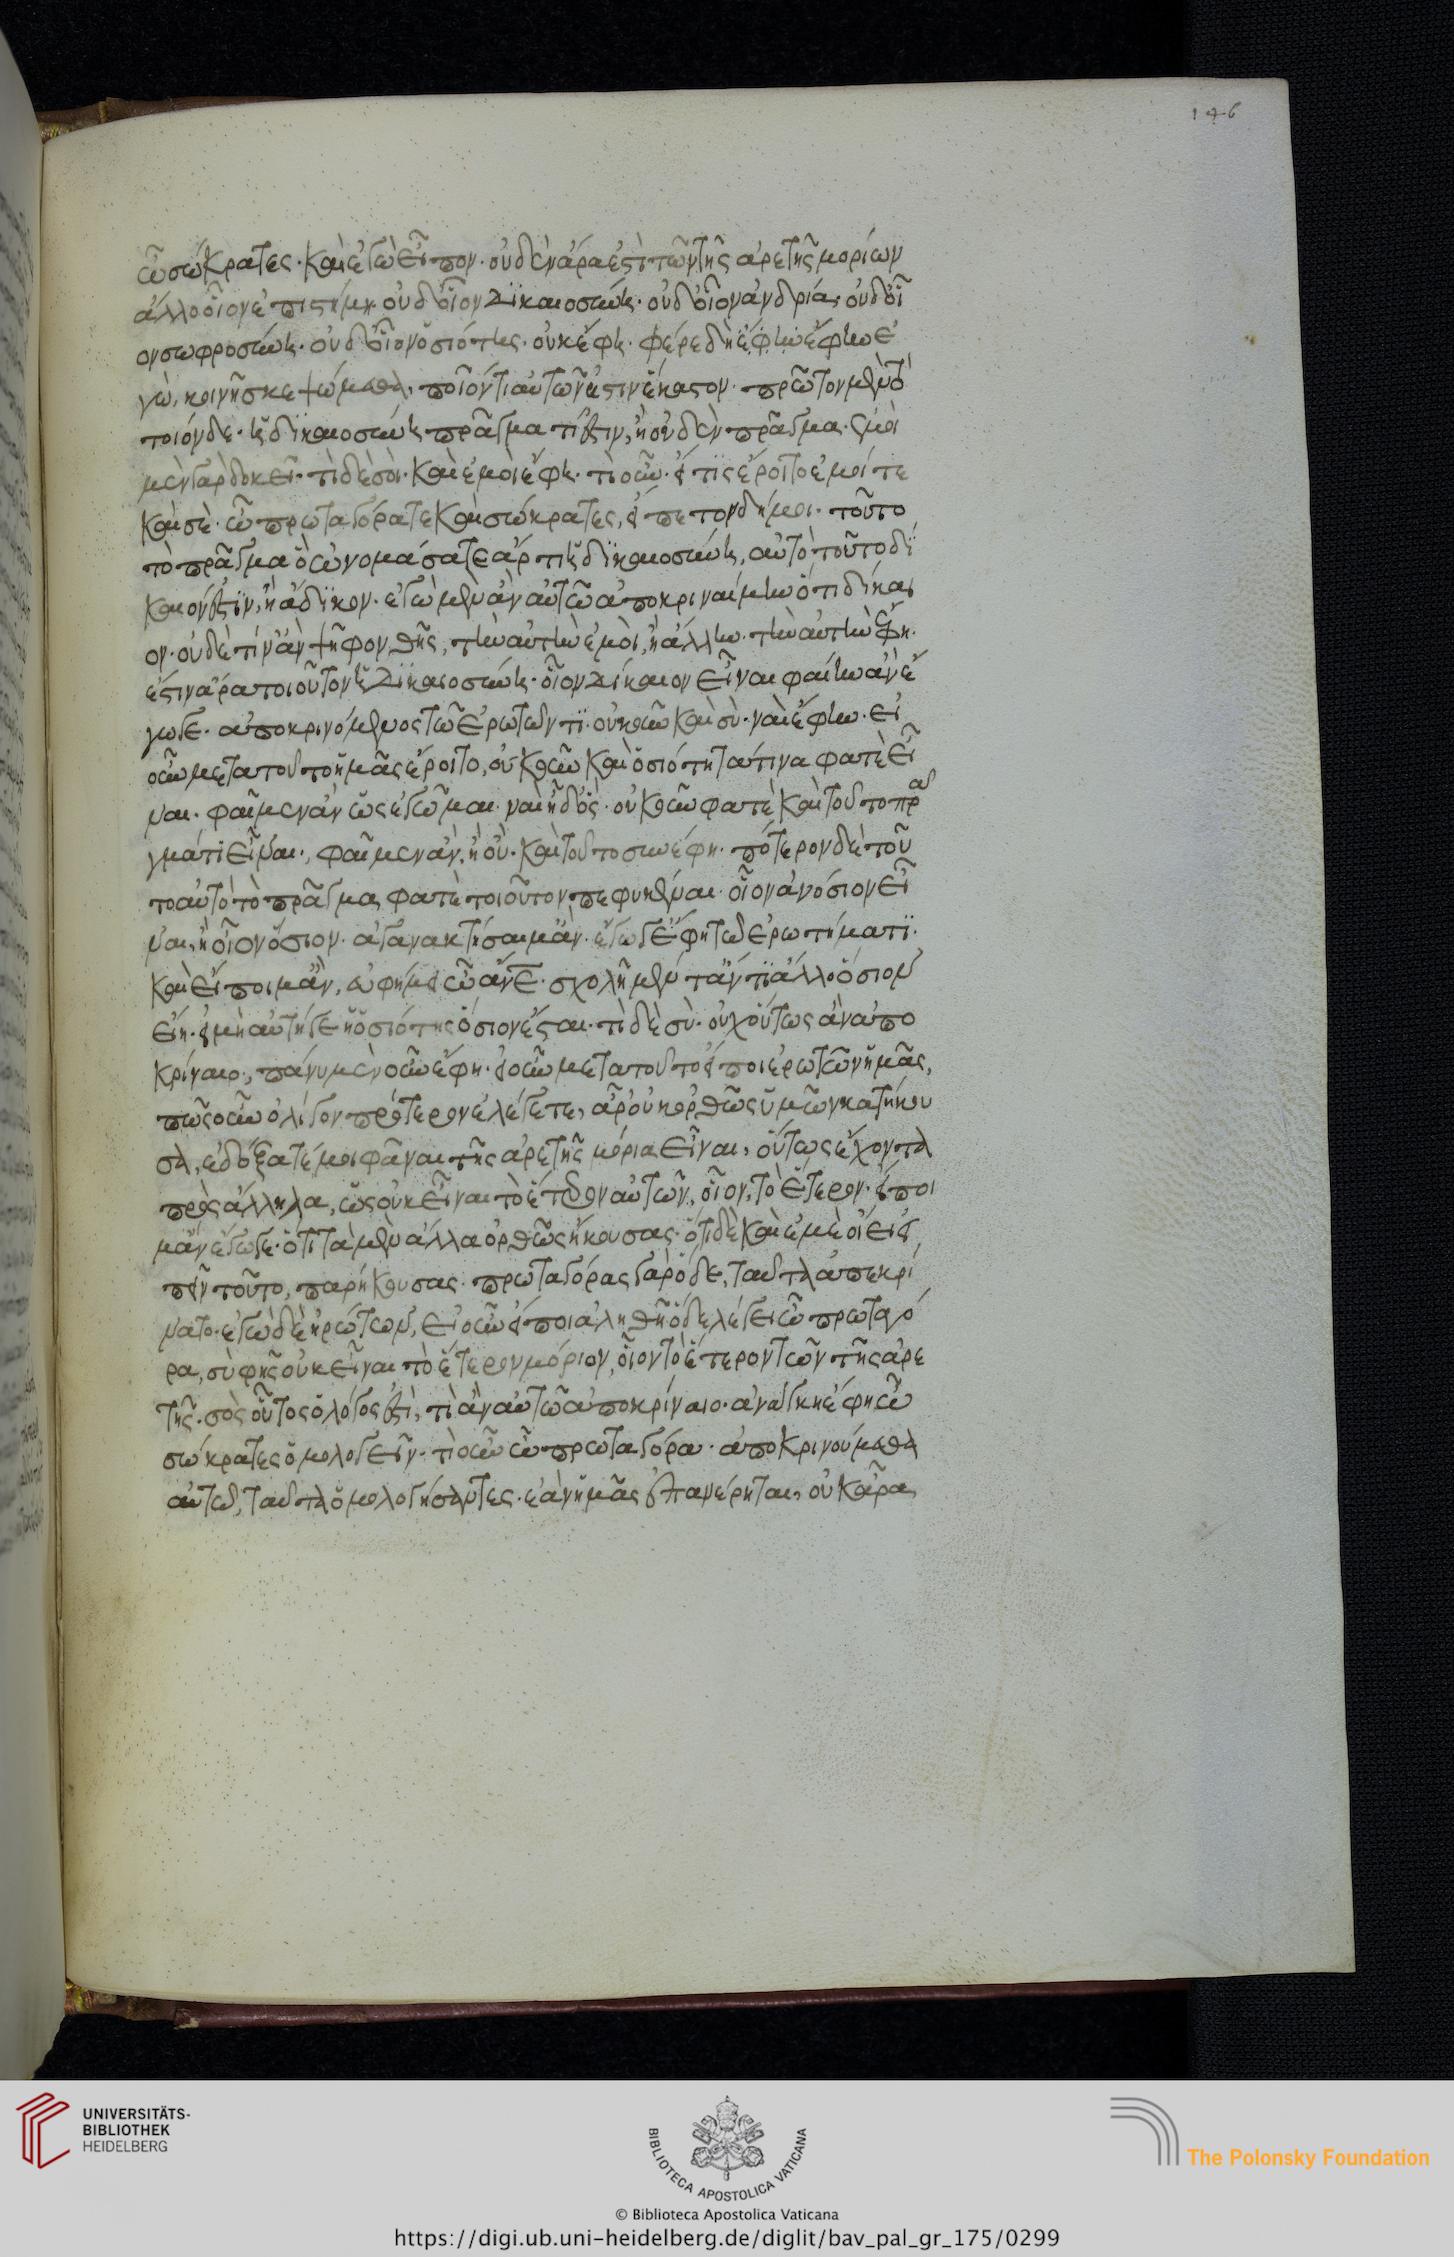 146
ὦ σώκρατες· καὶ ἐγὼ εἶπον· οὐδὲν ἄρα ἐστὶ τῶν τῆς ἀρετῆς μορίων
ἄλλο οἷον ἐπιστήμη· οὐδ' οἷον δικαιοσύνη· οὐδ' οἷον ἀνδρία· οὐδ' οἷ
ον σωφροσύνη· οὐδ' οἷον ὁσιότης· οὐκ ἔφη· φέρε δὴ ἔφην ἔφην ἐ
γὼ, κοινῇ σκεψώμεθα, ποῖόν τι αὐτῶν ἐστὶν ἕκαστον· πρῶτον μὲν τὸ
ποιόνδε· ἡ δικαιοσύνη πρᾶγμα τί ἐστιν, ἢ οὐδὲν πρᾶγμα· ἐμοὶ
μὲν γὰρ δοκεῖ· τί δὲ σοὶ· καὶ ἐμοὶ ἔφη· τί οὖν· εἴ τις ἔροιτο ἐμέ τε
καὶ σὲ· ὦ πρωταγόρα τε καὶ σώκρατες, εἴπετον δή μοι· τοῦτο
τὸ πρᾶγμα ὃ ὠνομάσατε ἄρτι ἡ δικαιοσύνη, αὐτὸ τοῦτο δί
καιόν ἐστιν, ἢ ἄδικον· ἐγὼ μὲν ἂν αὐτῶ ἀποκριναίμην ὅτι δίκαι
ον· σὺ δὲ τίν' ἂν ψῆφον θῆς, τὴν αὐτὴν ἐμοὶ, ἢ ἄλλην· τὴν αὐτὴν ἔφη·
ἐστιν ἄρα τοιοῦτον ἡ δικαιοσύνη· οἷον δίκαιον εἶναι φαίην ἂν ἔ
γωγε· ἀποκρινόμενος τῶ ἐρωτῶντι· οὐκοῦν καὶ σὺ· ναὶ ἔφην· εἰ
οὖν μετὰ τοῦτο ἡμᾶς ἔροιτο, οὐκοῦν καὶ ὁσιότητά τινα φατὲ εἶ
ναι· φαῖμεν ἂν ὡς ἐγῶμαι· ναὶ ἦ δ' ὃς· οὐκοῦν φατὲ καὶ τοῦτο πρᾶ
γμά τι εἶναι·, φαῖμεν ἂν, ἢ οὔ· καὶ τοῦτο συνέφη· πότερον δὲ τοῦ
το αὐτὸ τὸ πρᾶγμα φατὲ τοιοῦτον πεφυκέναι· οἷον ἀνόσιον εἶ
ναι, ἢ οἷον ὅσιον· ἀγανακτήσαιμ' ἂν· ἔγωγ' ἔφη τῶ ἐρωτήματι·
καὶ εἴποιμ' ἂν, εὐφήμει ὦ ἄνε· σχολῇ μέν τἄν τι ἄλλο ὅσιον
εἴη· εἰ μὴ αὐτή γε ἡ ὁσιότης ὅσιον ἔσται· τί δὲ σὺ· οὐχ οὕτως ἂν ἀπο
κρίναιο·, πάνυ μὲν οὖν ἔφη· εἰ οὖν μετὰ τοῦτο εἴποι ἐρωτῶν ἡμᾶς,
πῶς οὖν ὀλίγον πρότερον ἐλέγετε, ἆρ' οὐκ ὀρθῶς ὑμῶν κατήκου
σα, ἐδόξατέ μοι φάναι τῆς ἀρετῆς μόρια εἶναι, οὕτως ἔχοντα
πρὸς ἄλληλα, ὡς οὐκ εἶναι τὸ ἕτερον αὐτῶν, οἷον τὸ ἕτερον· εἴποι
μ' ἂν ἔγωγε· ὅτι τὰ μὲν ἄλλα ὀρθῶς ἤκουσας· ὅτι δὲ καὶ ἐμὲ οἴει εἰ
πεῖν τοῦτο, παρήκουσας· πρωταγόρας γὰρ ὅδε, ταῦτα ἀπεκρί
νατο· ἐγὼ δὲ ἠρώτων, εἰ οὖν εἴποι ἀληθῆ ὅδε λέγει ὦ πρωταγό
ρα, σὺ φῇς οὐκ εἶναι τὸ ἕτερον μόριον, οἷον τὸ ἕτερον τῶν τῆς ἀρε
τῆς· σὸς οὗτος ὁ λόγος ἐστὶ, τί ἂν αὐτῶ ἀποκρίναιο· ἀνάγκη ἔφη ὦ
σώκρατες ὁμολογεῖν· τί οὖν ὦ πρωταγόρα· ἀποκρινούμεθα
αὐτῶ, ταῦτα ὁμολογήσαντες· ἐὰν ἡμᾶς ἐπανέρηται, οὐκ ἄρα
UNIVERSITÄTS-
BIBLIOTHEK
HEIDELBERG
BIBLIOTECA APOSTOLICA VATICANA
The Polonsky Foundation
© Biblioteca Apostolica Vaticana
https://digi.ub.uni-heidelberg.de/diglit/bav_pal_gr_175/0299